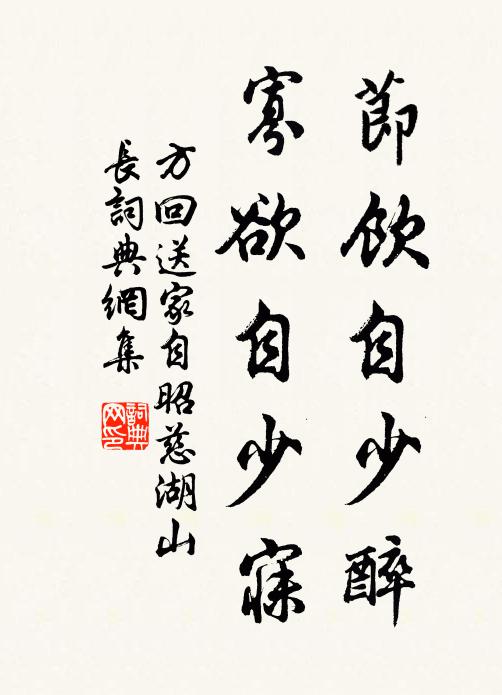 節飲自少醉
寡欲自少寐
方回送家自昭慈湖山
長詞典網集
詞典
网印